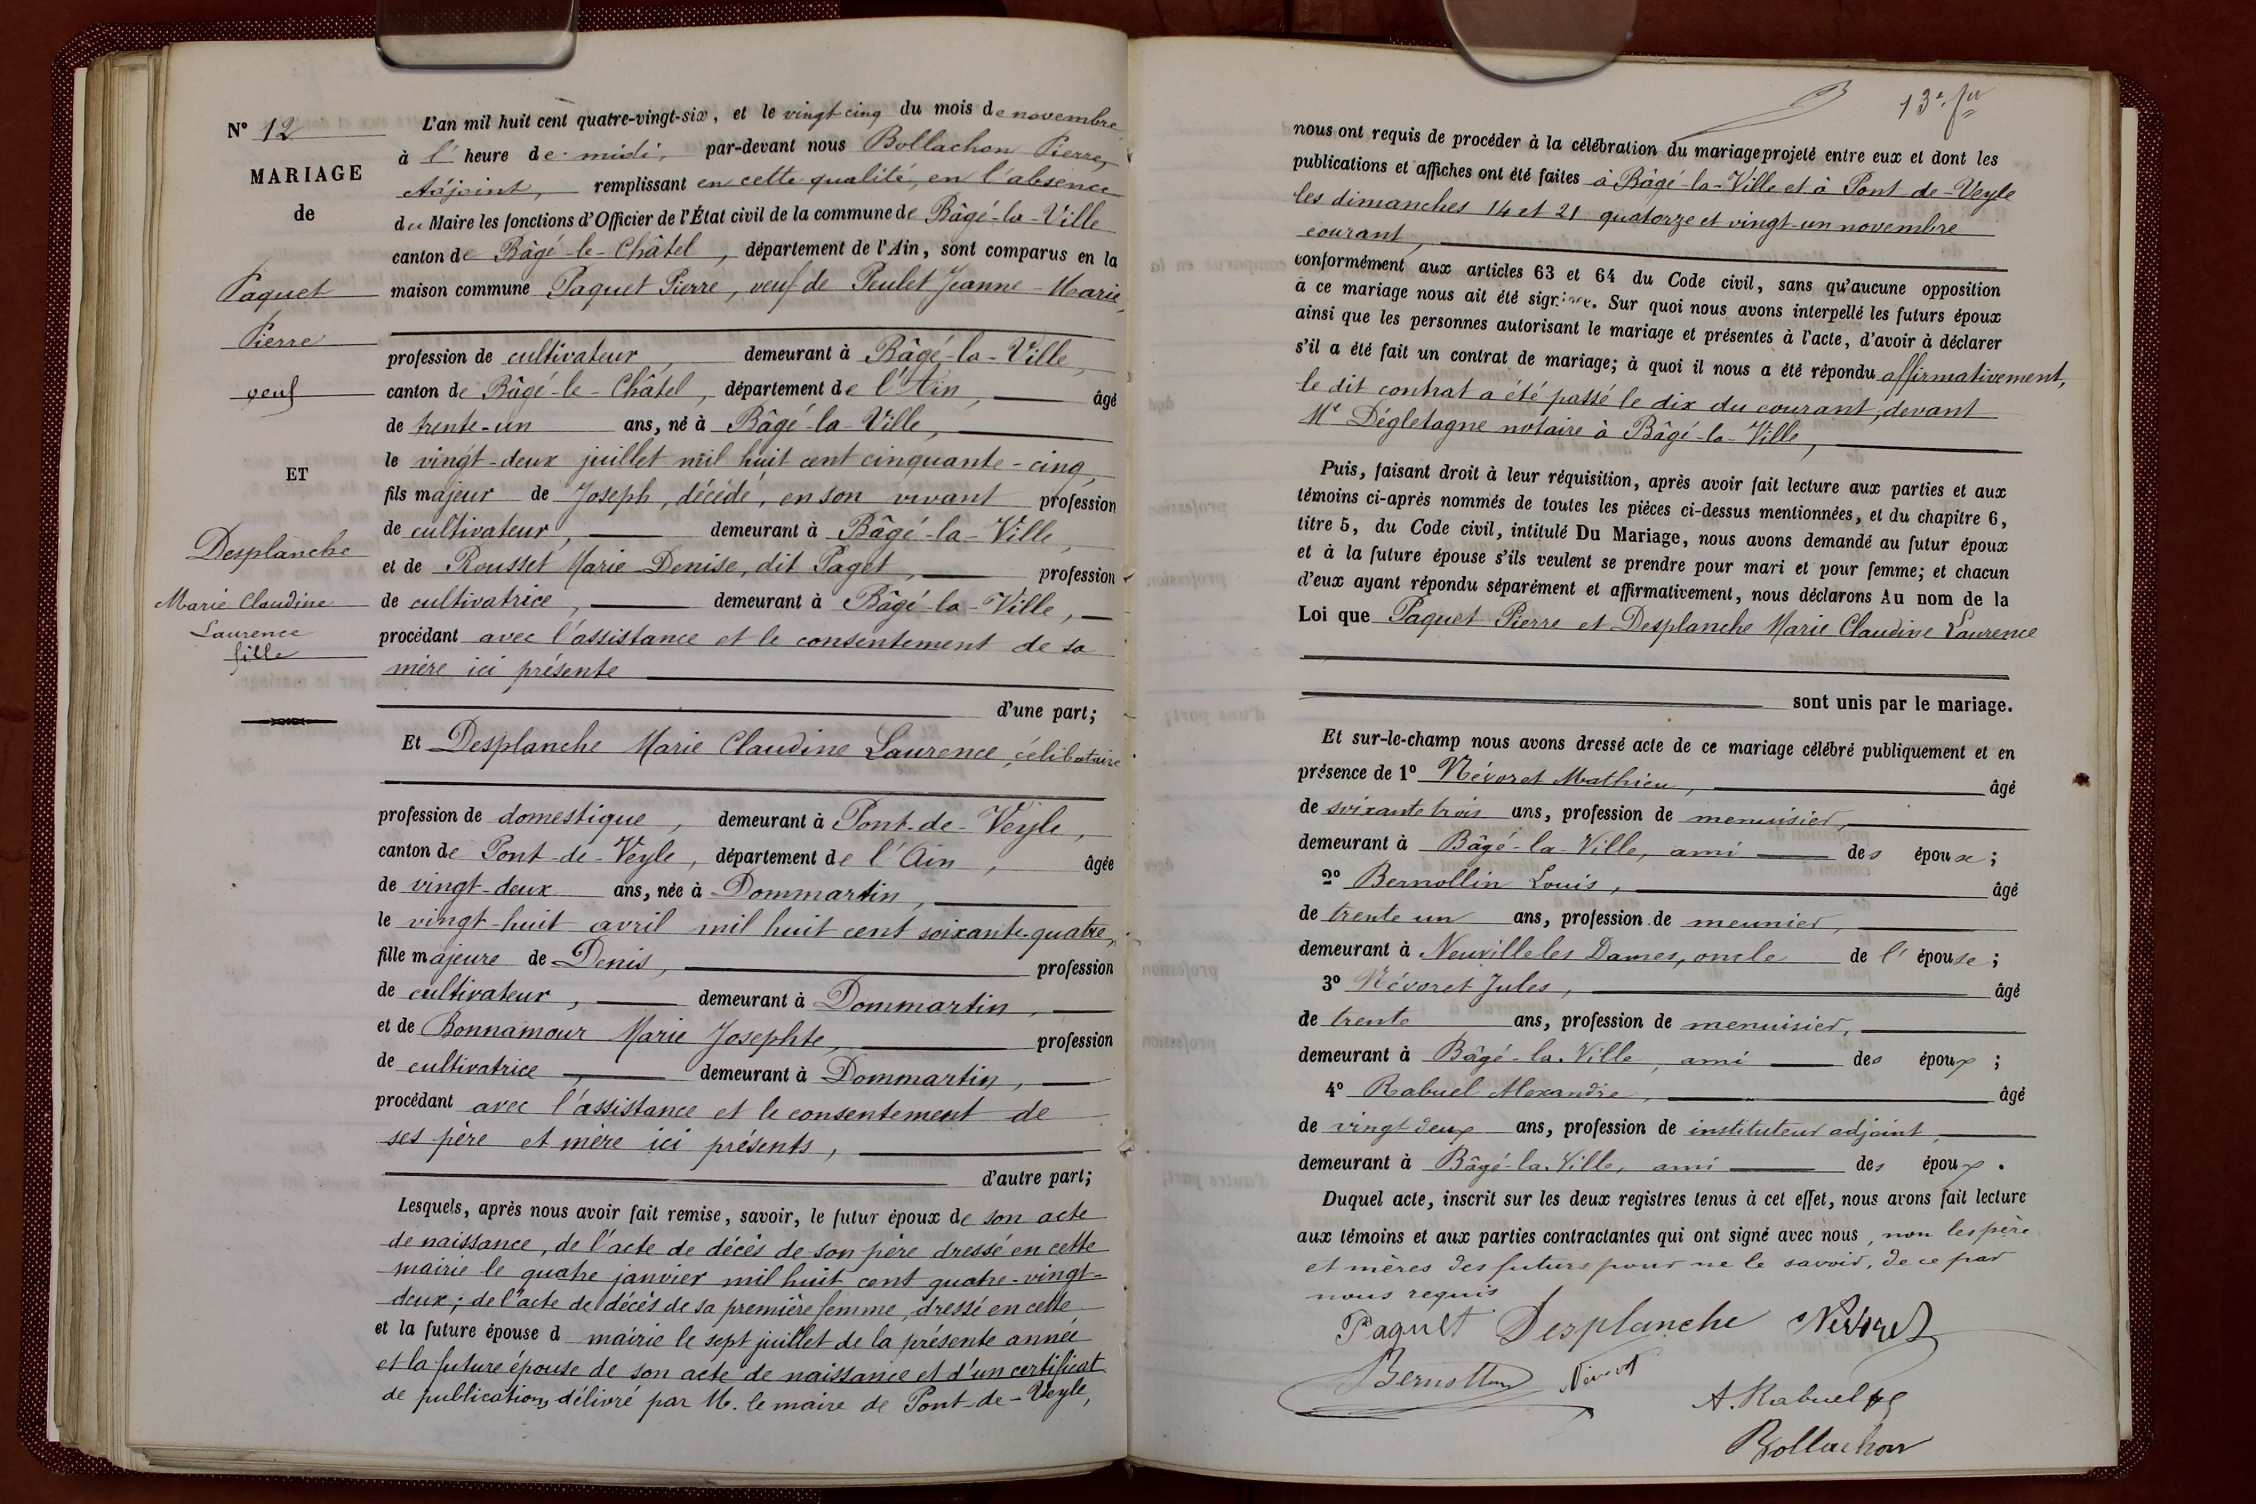 N° 12
MARIAGE
de
Paquet
Pierre
veuf
ET
Desplanche
Marie Claudine
Laurence
fille
L'an mil huit cent quatre-vingt-six, et le vingt cinq du mois de novembre
à l' heure de midi, par-devant nous Bollachon Pierre,
Adjoint, remplissant en cette qualité, en l'absence
du Maire les fonctions d'Officier de l'État civil de la commune de Bâgé-la-Ville
canton de Bâgé-le-Châtel, département de l'Ain, sont comparus en la
maison commune Paquet Pierre, veuf de Peulet Jeanne-Marie,
profession de cultivateur, demeurant à Bâgé-la-Ville,
canton de Bâgé-le-Châtel, département de l'Ain, âgé
de trente-un ans, né à Bâgé-la-Ville,
le vingt-deux juillet mil huit cent cinquante-cinq,
fils majeur de Joseph, décédé, en son vivant profession
de cultivateur, demeurant à Bâgé-la-Ville,
et de Rousset Marie Denise, dit Paget, profession
de cultivatrice, demeurant à Bâgé-la-Ville,
procédant avec l'assistance et le consentement de sa
mère ici présente
d'une part;
Et Desplanche Marie Claudine Laurence, célibataire
profession de domestique, demeurant à Pont-de-Veyle,
canton de Pont-de-Veyle, département de l'Ain, âgée
de vingt-deux ans, née à Dommartin,
le vingt-huit avril mil huit cent soixante-quatre,
fille majeure de Denis, profession
de cultivateur, demeurant à Dommartin,
et de Bonnamour Marie Josephte, profession
de cultivatrice, demeurant à Dommartin,
procédant avec l'assistance et le consentement de
ses père et mère ici présents,
d'autre part;
Lesquels, après nous avoir fait remise, savoir, le futur époux de son acte
de naissance, de l'acte de décès de son père dressé en cette
mairie le quatre janvier mil huit cent quatre-vingt-
deux; de l'acte de décès de sa première femme, dressé en cette
et la future épouse d mairie le sept juillet de la présente année
et la future épouse de son acte de naissance et d'un certificat
de publications délivré par M. le maire de Pont-de-Veyle,
13e. fer
nous ont requis de procéder à la célébration du mariage projeté entre eux et dont les
publications et affiches ont été faites à Bâgé-la-Ville et à Pont-de-Veyle
les dimanches 14 et 21 quatorze et vingt-un novembre
courant,
conformément aux articles 63 et 64 du Code civil, sans qu'aucune opposition
à ce mariage nous ait été signifiée. Sur quoi nous avons interpellé les futurs époux
ainsi que les personnes autorisant le mariage et présentes à l'acte, d'avoir à déclarer
s'il a été fait un contrat de mariage; à quoi il nous a été répondu affirmativement,
le dit contrat a été passé le dix du courant, devant
Me Dégletagne notaire à Bâgé-la-Ville,
Puis, faisant droit à leur réquisition, après avoir fait lecture aux parties et aux
témoins ci-après nommés de toutes les pièces ci-dessus mentionnées, et du chapitre 6,
titre 5, du Code civil, intitulé Du Mariage, nous avons demandé au futur époux
et à la future épouse s'ils veulent se prendre pour mari et pour femme; et chacun
d'eux ayant répondu séparément et affirmativement, nous déclarons Au nom de la
Loi que Paquet Pierre et Desplanche Marie Claudine Laurence
sont unis par le mariage.
Et sur-le-champ nous avons dressé acte de ce mariage célébré publiquement et en
présence de 1° Névoret Mathieu, âgé
de soixante trois ans, profession de menuisier,
demeurant à Bâgé-la-Ville, ami des époux;
2° Bernollin Louis, âgé
de trente un ans, profession de meunier,
demeurant à Neuville les Dames, oncle de l'épouse;
3° Névoret Jules, âgé
de trente ans, profession de menuisier,
demeurant à Bâgé-la-Ville, ami des époux;
4° Rabuel Alexandre, âgé
de vingt deux ans, profession de instituteur adjoint,
demeurant à Bâgé-la-Ville, ami des époux.
Duquel acte, inscrit sur les deux registres tenus à cet effet, nous avons fait lecture
aux témoins et aux parties contractantes qui ont signé avec nous, non les père
et mères des futurs pour ne le savoir, de ce par
nous requis
Paquet Desplanche Névoret
Bernollin Névoret
A. Rabuel
Bollachon